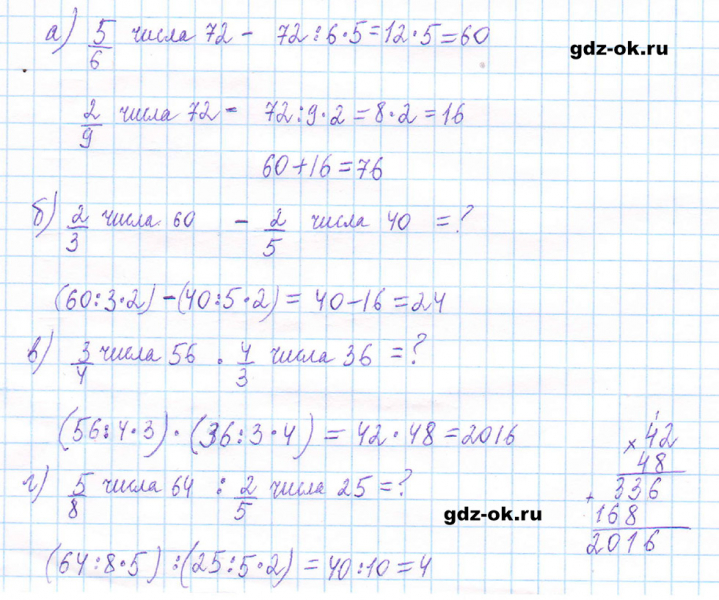 а) 5/6 числа 72 - 72:6·5=12·5=60
gdz-ok.ru
2/9 числа 72 - 72:9·2=8·2=16
60+16=76
б) 2/3 числа 60 - 2/5 числа 40 =?
(60:3·2)-(40:5·2)=40-16=24
в) 3/4 числа 56 · 4/3 числа 36 =?
(56:4·3)·(36:3·4)=42·48=2016
1
×42
48
+336
168
2016
г) 5/8 числа 64 : 2/5 числа 25=?
gdz-ok.ru
(64:8·5):(25:5·2)=40:10=4